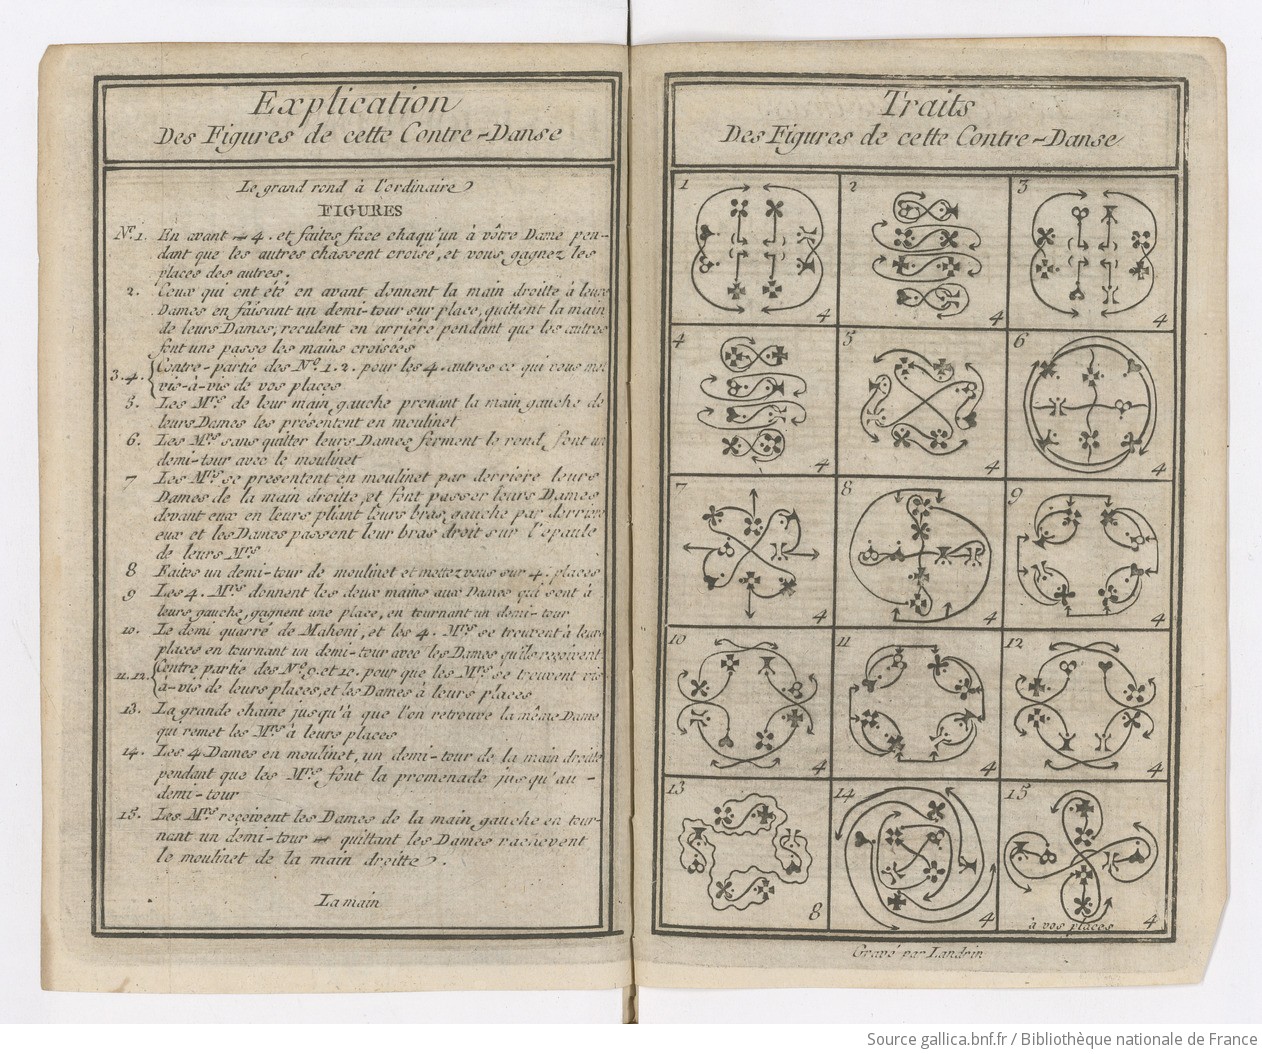 Explication
Des Figures de cette Contre-Danse
Le grand rond à l'ordinaire
FIGURES
Nº 1. En avant 4. et faites face chaqu'un à vôtre Dame pen-
dant que les autres chassent croisé, et vous gagnez les
places des autres.
2. Ceux qui ont été en avant donnent la main droitte à leurs
Dames en faisant un demi-tour sur place, quittent la main
de leurs Dames, reculent en arriére pendant que les autres
font une passe les mains croisées
3.4. Contre-partie des Nº 1.2. pour les 4. autres ce qui vous met
vis-à-vis de vos places
5. Les Mrs de leur main gauche prenant la main gauche de
leurs Dames les présentent en moulinet
6. Les Mrs sans quitter leurs Dames ferment le rond, font un
demi-tour avec le moulinet
7 Les Mrs se presentent en moulinet par derriere leurs
Dames de la main droitte, et font passer leurs Dames
devant eux en leurs pliant leurs bras gauche par derriere
eux et les Dames passent leur bras droit sur l'épaule
de leurs Mrs
8 Faites un demi-tour de moulinet et mettez vous sur 4. places
9 Les 4. Mrs donnent les deux mains aux Dames qui sont à
leurs gauche, gagnent une place, en tournant un demi-tour
10. Le demi quarré de Mahoni, et les 4. Mrs se trouvent à leurs
places en tournant un demi-tour avec les Dames qu'ils reçoivent
11.12. Contre partie des Nº 9. et 10. pour que les Mrs se trouvent vis-
à-vis de leurs places, et les Dames à leurs places
13. La grande chaîne jusqu'à que l'on retrouve la même Dame
qui remet les Mrs à leurs places
14. Les 4 Dames en moulinet, un demi-tour de la main droitte
pendant que les Mrs font la promenade jusqu'au -
demi-tour
15. Les Mrs reçoivent les Dames de la main gauche en tour-
nant un demi-tour quittant les Dames rachevent
le moulinet de la main droitte.
La main
Traits
Des Figures de cette Contre-Danse
1 4
2 4
3 4
4 4
5 4
6 4
7 4
8 4
9 4
10 4
11 4
12 4
13 8
14 4
15 4
à vos places
Gravé par Landrin
Source gallica.bnf.fr / Bibliothèque nationale de France